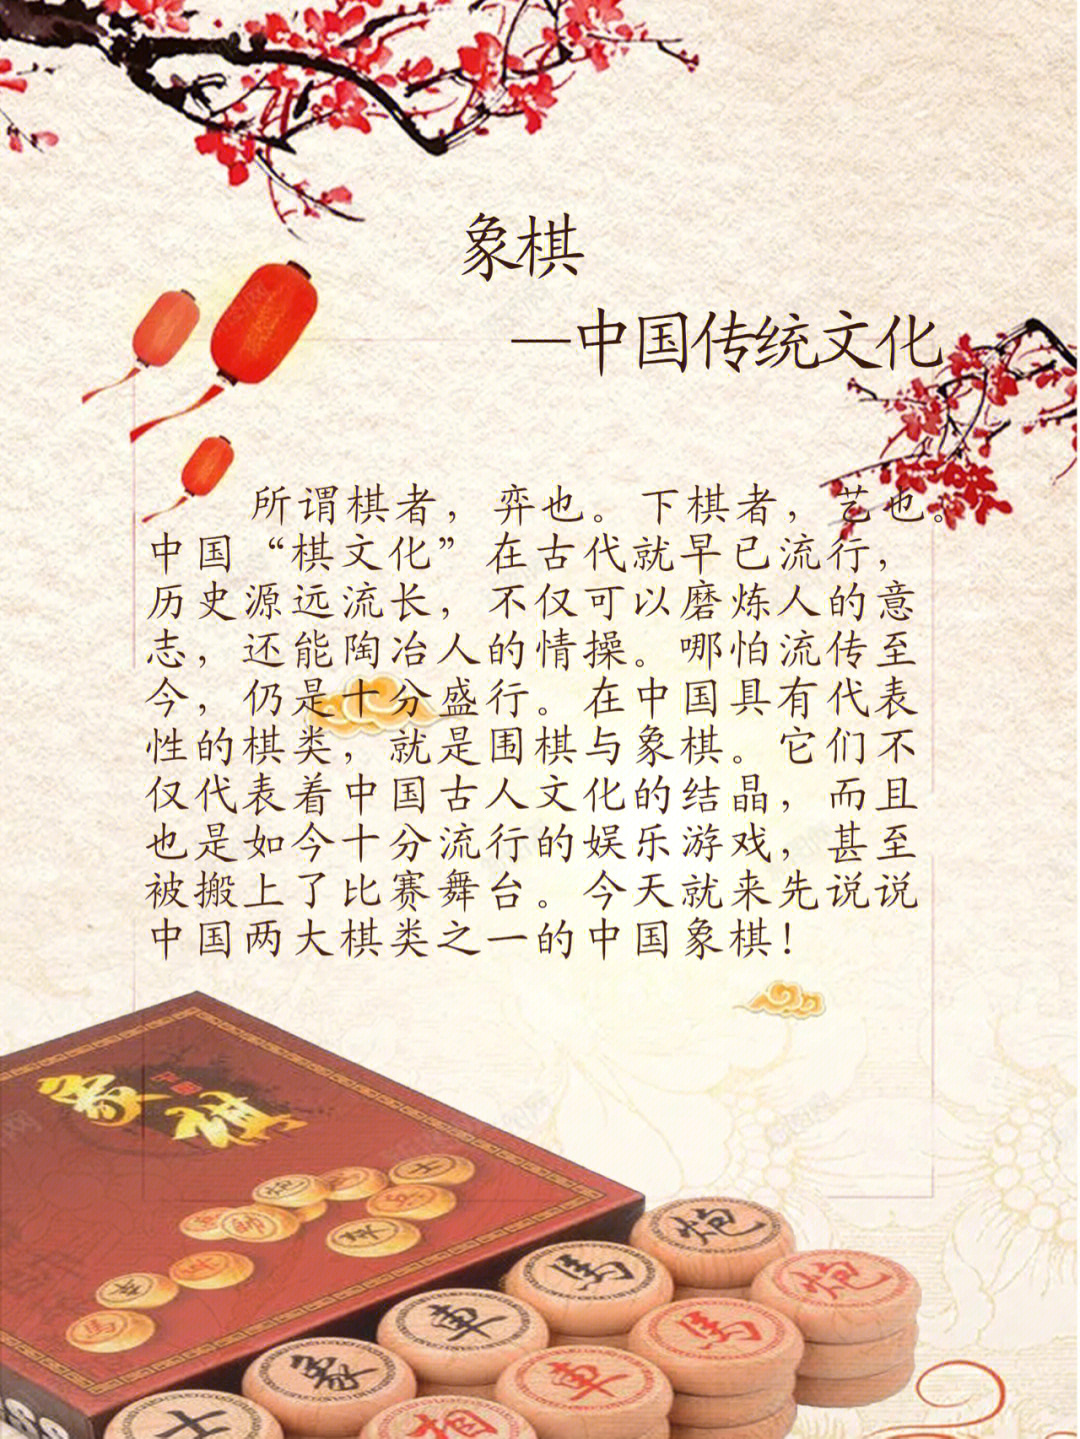 象棋
—中国传统文化
所谓棋者，弈也。下棋者，艺也。
中国“棋文化”在古代就早已流行，
历史源远流长，不仅可以磨炼人的意
志，还能陶冶人的情操。哪怕流传至
今，仍是十分盛行。在中国具有代表
性的棋类，就是围棋与象棋。它们不
仅代表着中国古人文化的结晶，而且
也是如今十分流行的娱乐游戏，甚至
被搬上了比赛舞台。今天就来先说说
中国两大棋类之一的中国象棋！
象棋
炮
馬
炮
車
馬
象
車
士
相